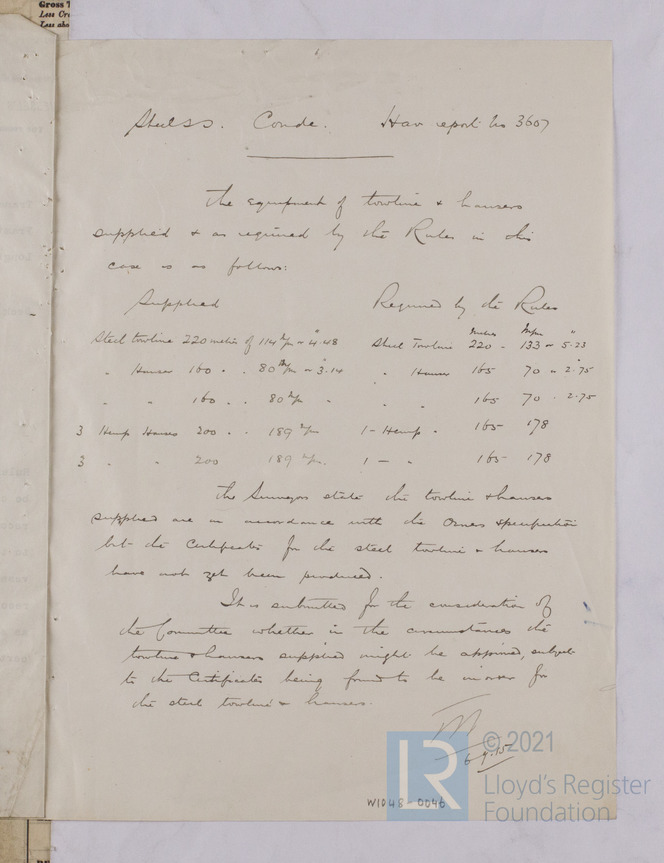 Gross T
Less Cr
Less abo
Steel SS. Conde. Hav report No 3607
The equipment of towline & hawsers
supplied & as required by the Rules in this
case is as follows:
Supplied Required by the Rules
Metres m/m "
Steel towline 220 metres of 114 m/m or 4.48 Steel Towline 220 - 133 or 5.23
" Hawser 160 " " 80 m/m or 3.14 " Hawser 165 70 or 2.75
" " 160 " " 80 m/m " " " 165 70 " 2.75
3 Hemp Hawsers 200 " " 189 m/m 1 - Hemp " 165 178
3 " " 200 189 m/m. 1 - " 165 178
The Surveyors state the towline & hawsers
supplied are in accordance with the Owners specification
but the Certificates for the steel towline & hawsers
have not yet been produced.
It is submitted for the consideration of
the Committee whether in the circumstances the
towline & hawsers supplied might be approved, subject
to the Certificates being found to be in order for
the steel towline & hawsers.
6.9.15
W1048-0046
LR
© 2021
Lloyd's Register
Foundation